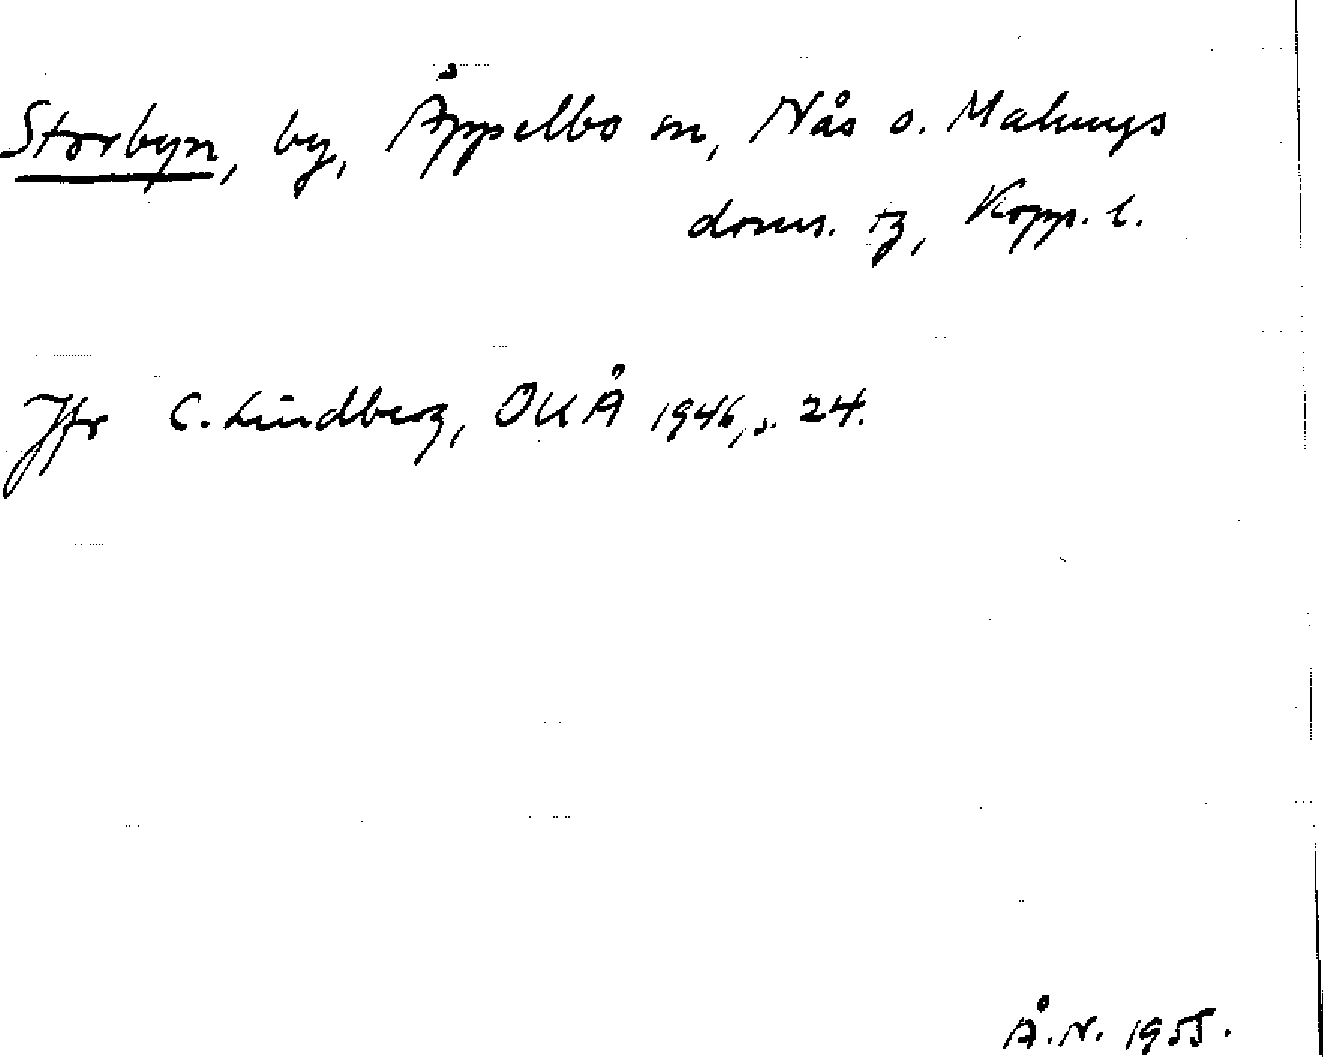 Storbyn, by, Äppelbo sn, Nås o. Malungs
doms. tg, Kopp. l.
Jfr C. Lindberg, OUÅ 1946, s. 24.
Å. N. 1955.